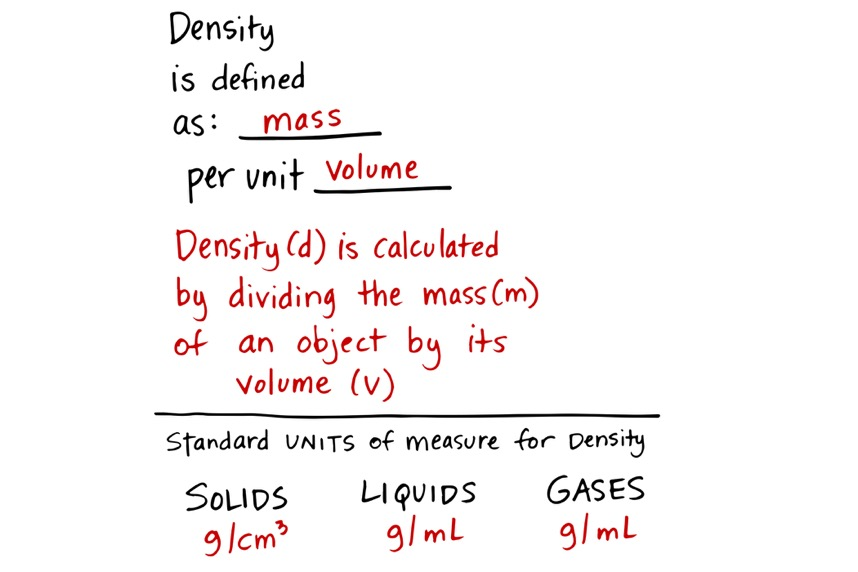 Density
is defined
as: mass
per unit volume
Density (d) is calculated
by dividing the mass (m)
of an object by its
volume (v)
Standard UNITS of measure for Density
SOLIDS LIQUIDS GASES
g/cm³ g/mL g/mL